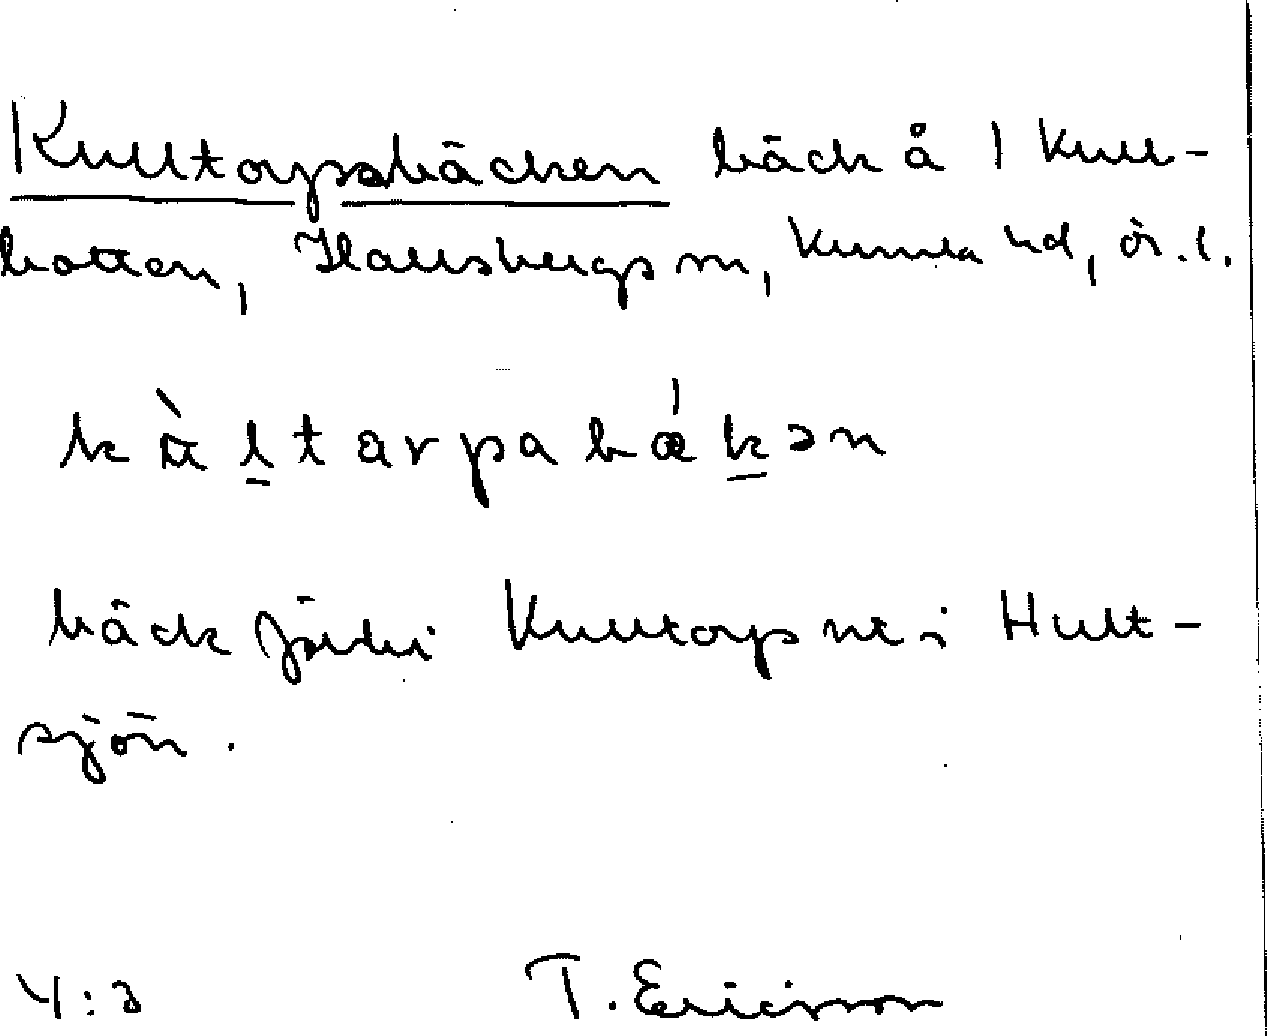 Kulltorpsbäcken bäck å 1 Kull-
botten, Hallsbergs sn, Kumla hd, ör.l.
kùltarpabækən
bäck förbi Kulltorp nt i Hult-
sjön.
4:3 T. Ericsson